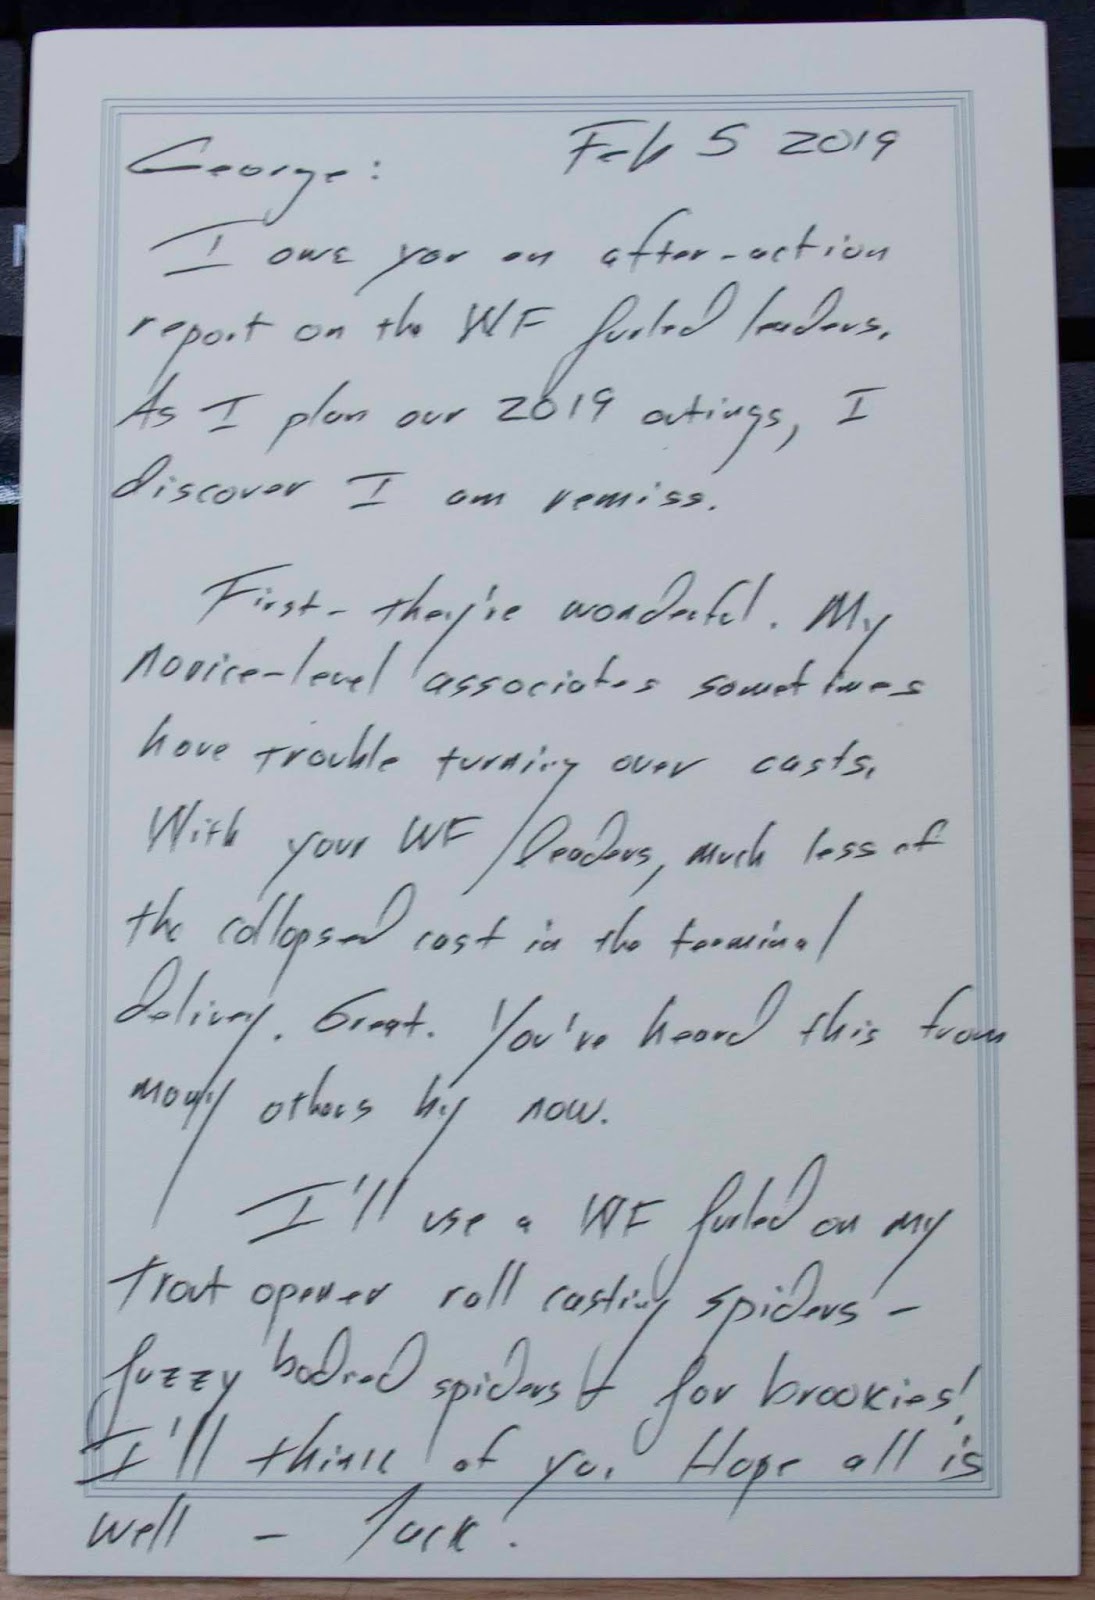 George: Feb 5 2019
I owe you an after-action
report on the WF furled leaders.
As I plan our 2019 outings, I
discover I am remiss.
First - they're wonderful. My
novice-level associates sometimes
have trouble turning over casts.
With your WF leaders, much less of
the collapsed cast in the terminal
delivery. Great. You've heard this from
many others by now.
I'll use a WF furled on my
trout opener roll casting spiders -
fuzzy bodied spiders for brookies!
I'll think of you. Hope all is
well - Jack.